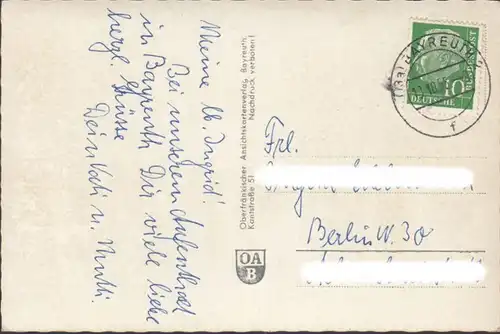 Meine lb. Ingrid!
Bei unserem Aufenthalt
in Bayreuth Dir viele liebe
herzl. Grüsse
Dein Vati u. Mutti.
Oberfränkischer Ansichtskartenverlag, Bayreuth,
Kantstraße 51 Nachdruck verboten!
OA
B
(13a) BAYREUTH
f
10
DEUTSCHE BUNDESPOST
Frl.
Berlin W. 30